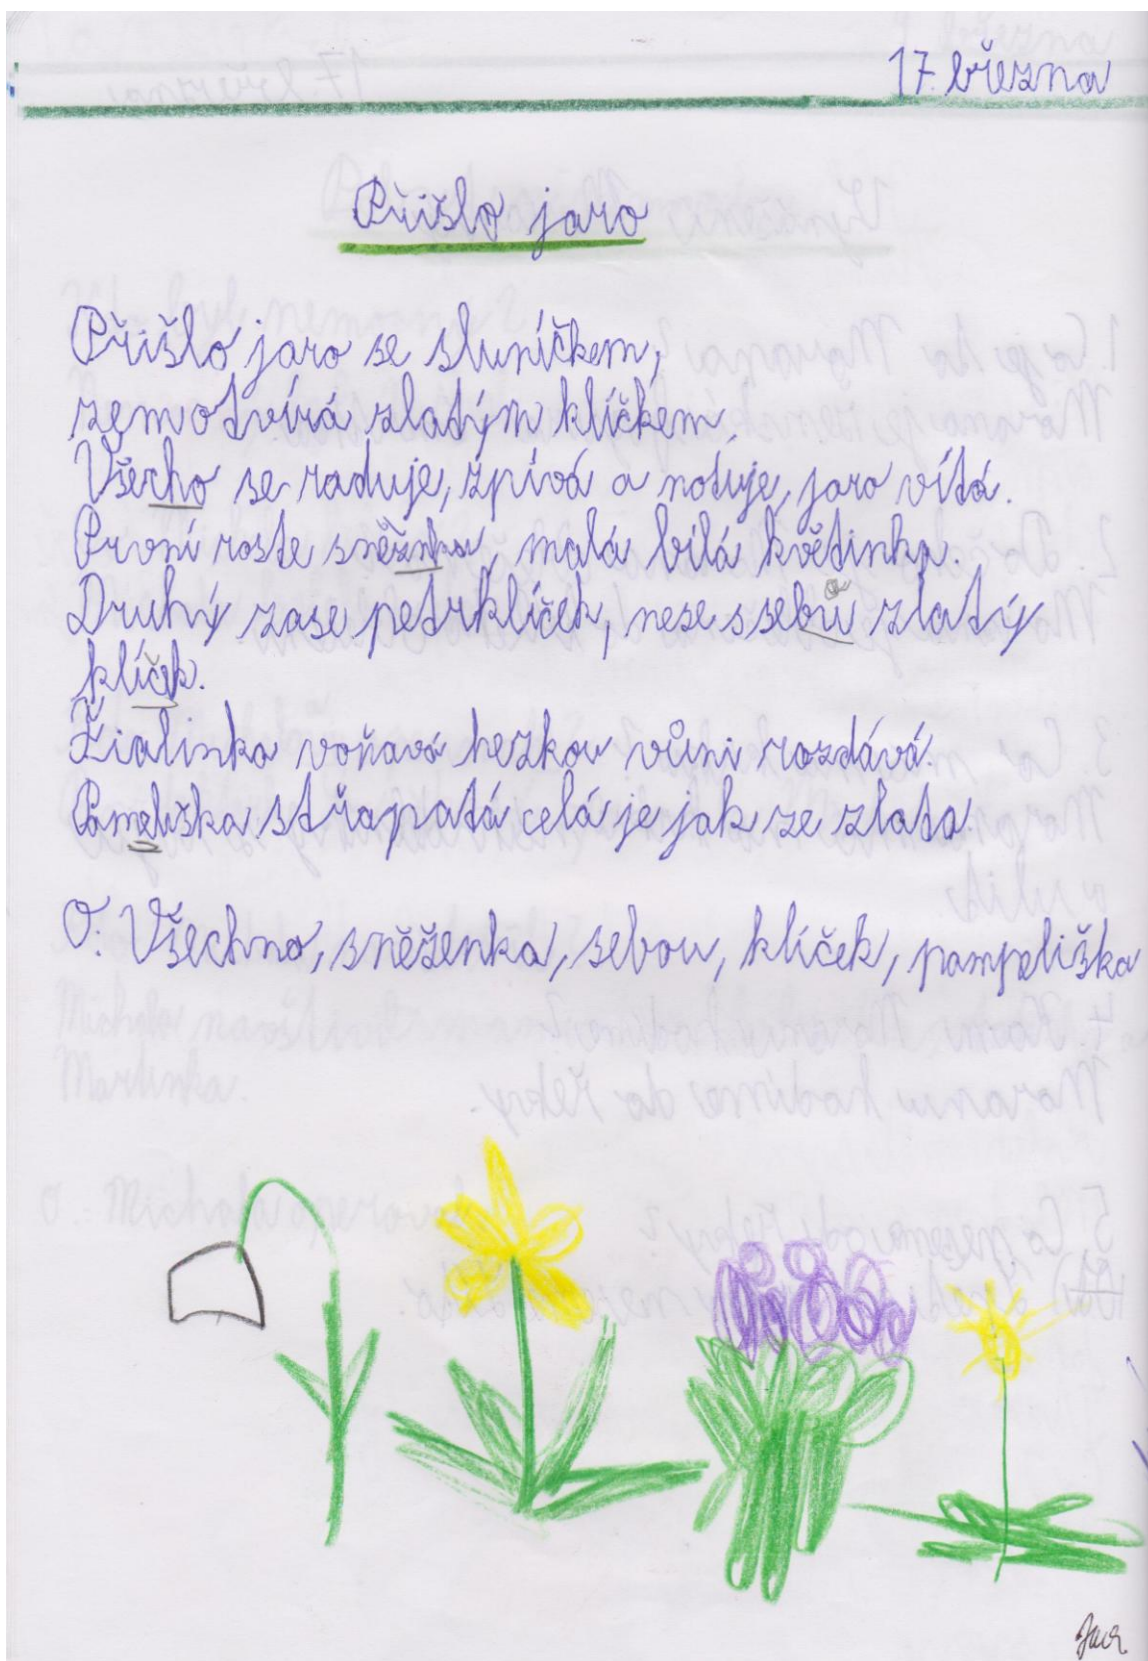 17. března
Přišlo jaro
Přišlo jaro se sluníčkem,
zem otvírá zlatým klíčkem.
Všecho se raduje, zpívá a notuje, jaro vítá.
První roste sněžnka, malá bílá květinka.
Druhý zase petrklíček, nese s sebu zlatý
klíček.
Fialinka voňavá hezkou vůni rozdává.
Pameliška střapatá celá je jak ze zlata.
O: Všechno, sněženka, sebou, klíček, pampeliška